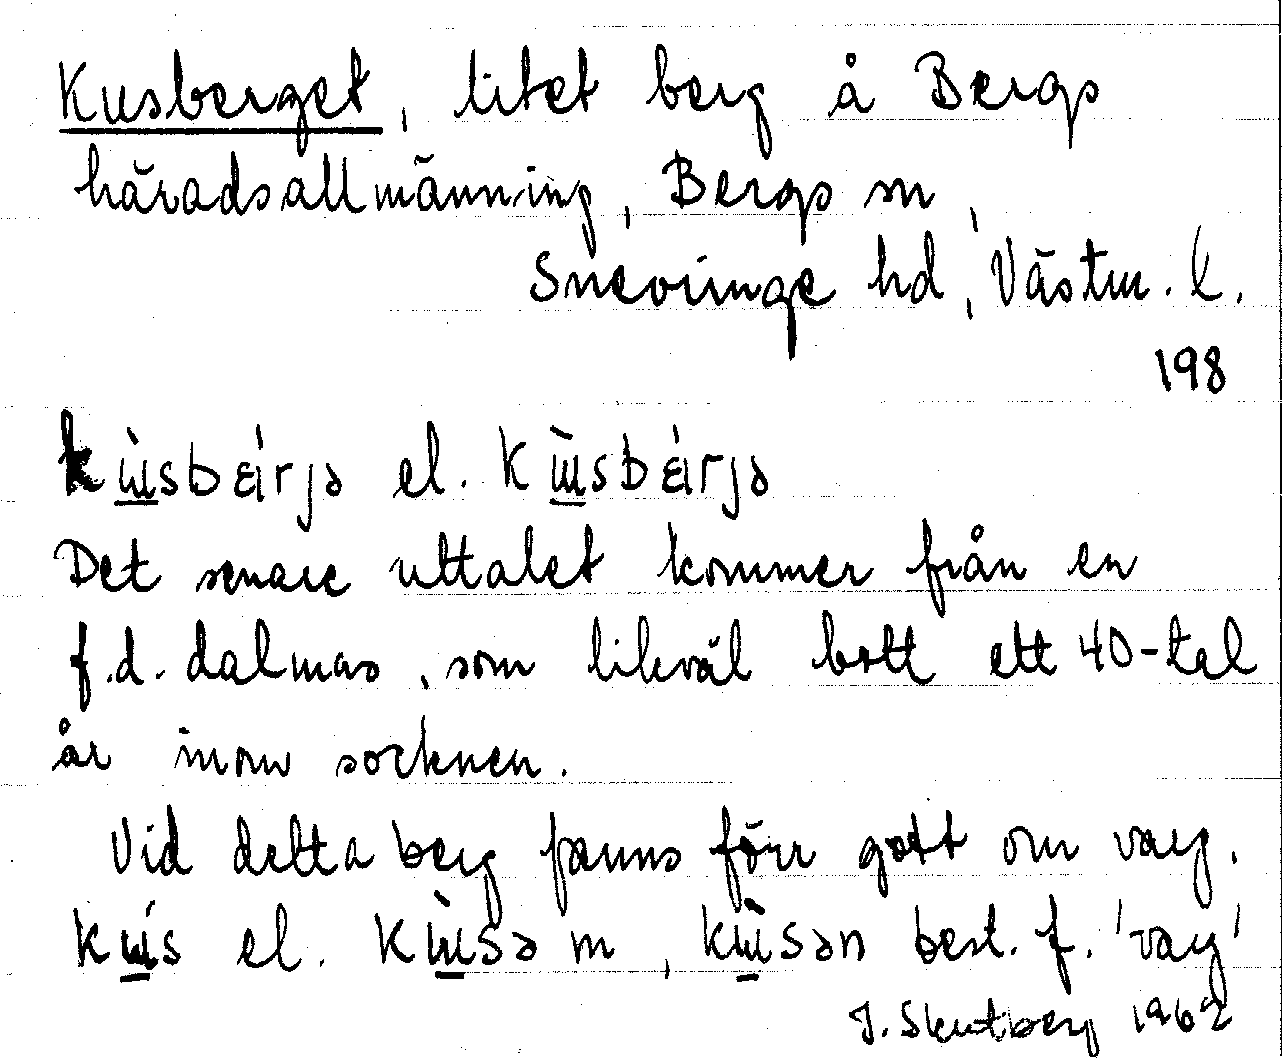 Kusberget, litet berg å Bergs
häradsallmänning, Bergs sn,
Snevringe hd, Västm. l.
198
kɯ̀sbɛ́rjə el. kɯ̀sbɛ́rjə
Det senare uttalet kommer från en
f.d. dalmas, som likväl bott ett 40-tal
år inom socknen.
Vid detta berg fanns förr gott om varg.
kɯ́s el. kɯ̀sə m, kɯ̀sən best. f. 'varg'
J. Skutberg 1962